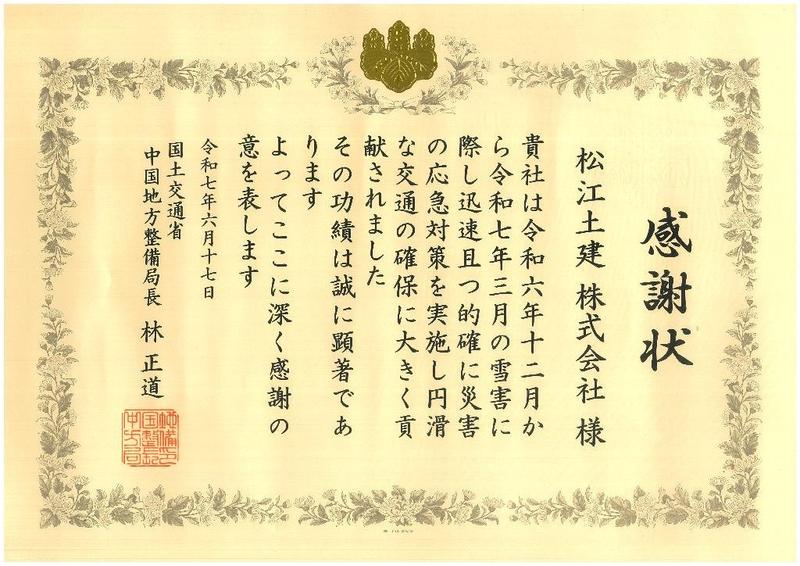 感謝状
松江土建 株式会社 様
貴社は令和六年十二月か
ら令和七年三月の雪害に
際し迅速且つ的確に災害
の応急対策を実施し円滑
な交通の確保に大きく貢
献されました
その功績は誠に顕著であ
ります
よってここに深く感謝の
意を表します
令和七年六月十七日
国土交通省
中国地方整備局長 林 正道